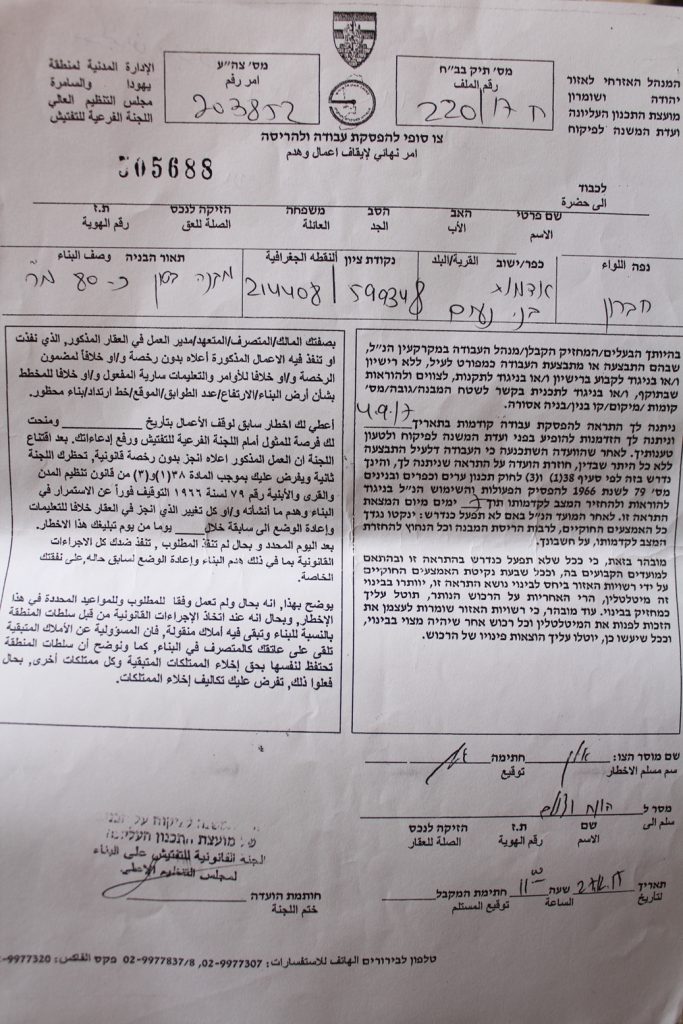 המנהל האזרחי לאזור
יהודה ושומרון
מועצת התכנון העליונה
ועדת המשנה לפיקוח
מס' תיק בב"ח
رقم الملف
ח 220/17
מס' צה"ע
امر رقم
203852
الإدارة المدنية لمنطقة
يهودا والسامرة
مجلس التنظيم العالي
اللجنة الفرعية للتفتيش
צו סופי להפסקת עבודה ולהריסה
امر نهائي لإيقاف اعمال وهدم
305688
לכבוד
الى حضرة
שם פרטי האב הסב משפחה הזיקה לנכס ת.ז
الاسم الأب الجد العائلة الصلة للعق رقم الهوية
נפה اللواء כפר/ישוב القرية/البلد נקודת ציון النقطه الجغرافية תאור הבניה وصف البناء
חברון
בני נעים
590348 214408
מבנה בטון כ- 80 מ"ר
בהיותך הבעלים/המחזיק הקבלן/מנהל העבודה במקרקעין הנ"ל,
שבהם התבצעה או מתבצעת העבודה כמפורט לעיל, ללא רישיון
ו/או בניגוד לקבוע ברישיון ו/או בניגוד לתקנות, לצווים ולהוראות
שבתוקף, ו/או בניגוד לתכנית בקשר לשטח המבנה/גובה/מס'
קומות /מיקום/קו בנין/בניה אסורה.
ניתנה לך התראה להפסקת עבודה קודמות בתאריך 4.9.17
וניתנה לך הזדמנות להופיע בפני ועדת המשנה לפיקוח ולטעון
טענותיך. לאחר שהוועדה השתכנעה כי העבודה דלעיל התבצעה
ללא כל היתר שבדין, חוזרת הועדה על התראה שניתנה לך, והינך
נדרש בזה לפי סעיף 38(1) ו(3) לחוק תכנון ערים וכפרים ובנינים
מס' 79 לשנת 1966 להפסיק הפעולות והשימוש הנ"ל בניגוד
להוראות ולהחזיר המצב לקדמותו תוך 7 ימים מיום המצאת
התראה זו. לאחר המועד הנ"ל באם לא תפעל כנדרש: ינקטו נגדך
כל האמצעים החוקיים, לרבות הריסת המבנה וכל הנחוץ להחזרת
המצב לקדמותו, על חשבונך.
מובהר בזאת, כי ככל שלא תפעל כנדרש בהתראה זו ובהתאם
למועדים הקבועים בה, וככל שבעת נקיטת האמצעים החוקיים
על ידי רשויות האזור ביחס לבינוי נושא התראה זו, יוותרו בבינוי
זה מיטלטלין, הרי האחריות על הרכוש הנותר, תוטל עליך
כמחזיק בבינוי. עוד מובהר, כי רשויות האזור שומרות לעצמן את
הזכות לפנות את המיטלטלין וכל רכוש אחר שיהיה מצוי בבינוי,
וככל שיעשו כן, יוטלו עליך הוצאות פינויו של הרכוש.
بصفتك المالك/المتصرف/المتعهد/مدير العمل في العقار المذكور, الذي نفذت
او تنفذ فيه الاعمال المذكورة أعلاه بدون رخصة و/او خلافاً لمضمون
الرخصة و/او خلافاً للأوامر والتعليمات سارية المفعول و/او خلافا للمخطط
بشأن أرض البناء/الارتفاع/عدد الطوابق/الموقع/خط ارتداد/بناء محظور.
أعطي لك اخطار سابق لوقف الأعمال بتاريخ ____ ومنحت
لك فرصة للمثول أمام اللجنة الفرعية للتفتيش ورفع إدعاءاتك. بعد اقتناع
لجنة ان العمل المذكور اعلاه انجز بدون رخصة قانونية, تحظرك اللجنة
ثانية ويفرض عليك بموجب المادة ٣٨(١)و(٣) من قانون تنظيم المدن
والقرى والأبنية رقم ٧٩ لسنة ١٩٦٦ التوقيف فوراً عن الاستمرار في
البناء وهدم ما أنشأته و/او كل تغيير الذي انجز في العقار خلافا للتعليمات
وإعادة الوضع الى سابقة خلال ____ يوما من يوم تبليغك هذا الاخطار.
بعد اليوم المحدد و بحال لم تنفذ المطلوب, تنفذ ضدك كل الاجراءات
القانونية بما في ذلك هدم البناء وإعادة الوضع لسابق حاله, على نفقتك
الخاصة.
يوضح بهذا, انه بحال ولم تعمل وفقا للمطلوب وللمواعيد المحددة في هذا
الإخطار, وبحال انه عند اتخاذ الإجراءات القانونية من قبل سلطات المنطقة
بالنسبة للبناء وتبقى فيه أملاك منقولة, فان المسؤولية عن الأملاك المتبقية
تلقى على عاتقك كالمتصرف في البناء, كما ونوضح أن سلطات المنطقة
تحتفظ لنفسها بحق إخلاء الممتلكات المتبقية وكل ممتلكات أخرى, بحال
فعلوا ذلك, تفرض عليك تكاليف إخلاء الممتلكات.
שם מוסר הצו: חתימה
اسم مسلم الاخطار توقيع
מסר ל
سلم الى
שם ת.ז הזיקה לנכס
الاسم رقم الهوية الصلة للعقار
תאריך שעה חתימת המקבל
لتاريخ الساعة توقيع المستلم
מועצת התכנון העליונה
اللجنة القانونية للتفتيش على البناء
لمجلس التنظيم الاعلى
חותמת הועדה
ختم اللجنة
טלפון לבירורים الهاتف للاستفسارات: 02-9977307, 02-9977837/8 פקס الفاكس: 9977320-